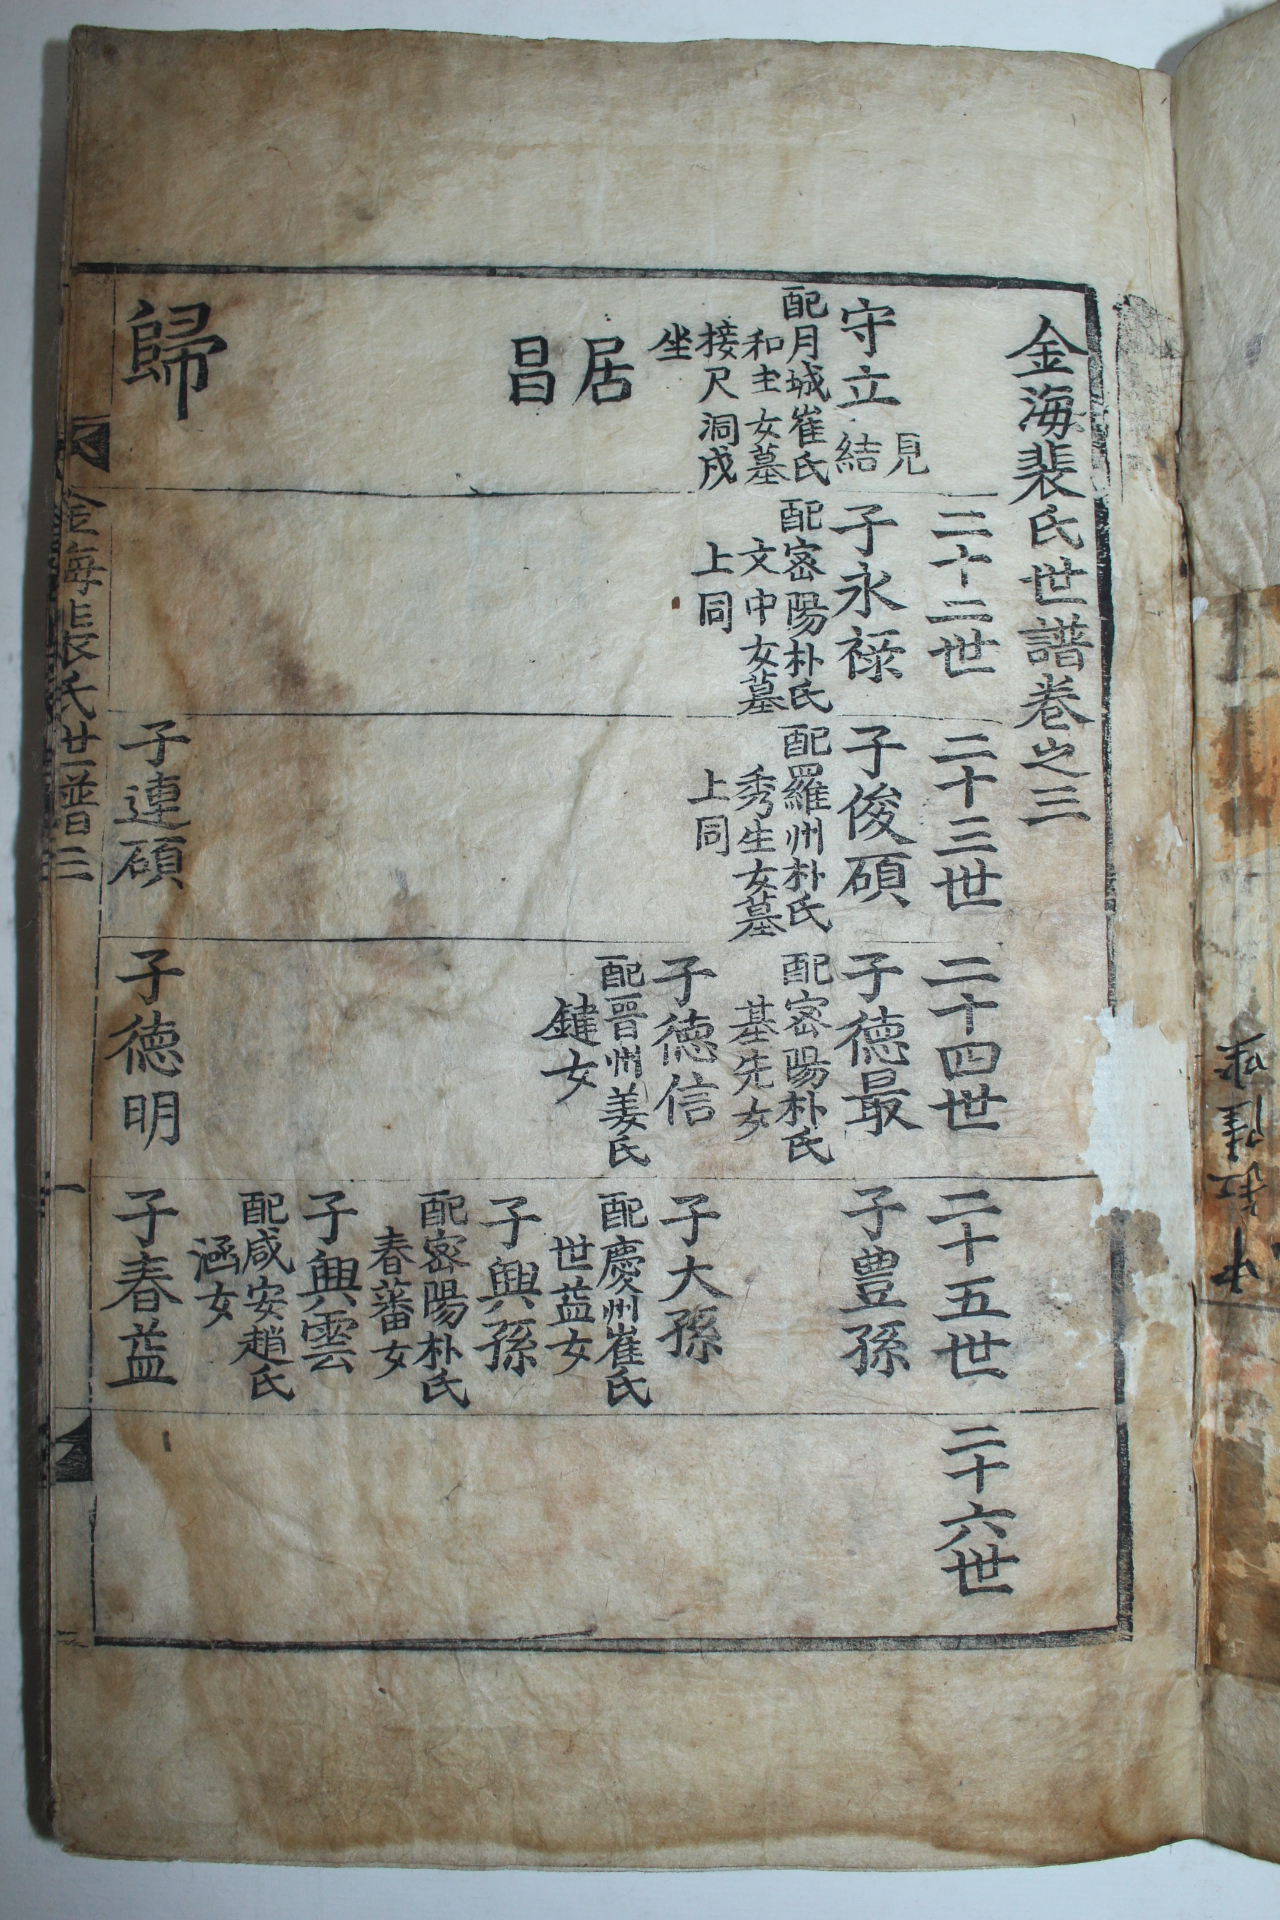 金海裴氏世譜卷之三
二十二世
二十三世
二十四世
二十五世
二十六世
守立
見
結
配月城崔氏
和主女墓
接尺洞戌
坐
居
昌
歸
子永祿
配密陽朴氏
文中女墓
上同
子俊碩
配羅州朴氏
秀生女墓
上同
子連碩
子德最
配密陽朴氏
基先女
子德信
配晉州姜氏
鍵女
子德明
子豊孫
子大孫
配慶州崔氏
世益女
子興孫
配密陽朴氏
春蕃女
子興雲
配咸安趙氏
涵女
子春益
金海裴氏世譜三
一